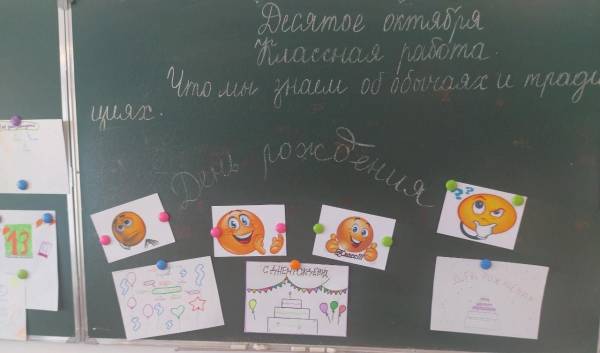 Десятое октября
Классная работа.
Что мы знаем об обычаях и тради
циях.
День рождения
Класс!!!
С ДНЕМ РОЖДЕНИЯ
13